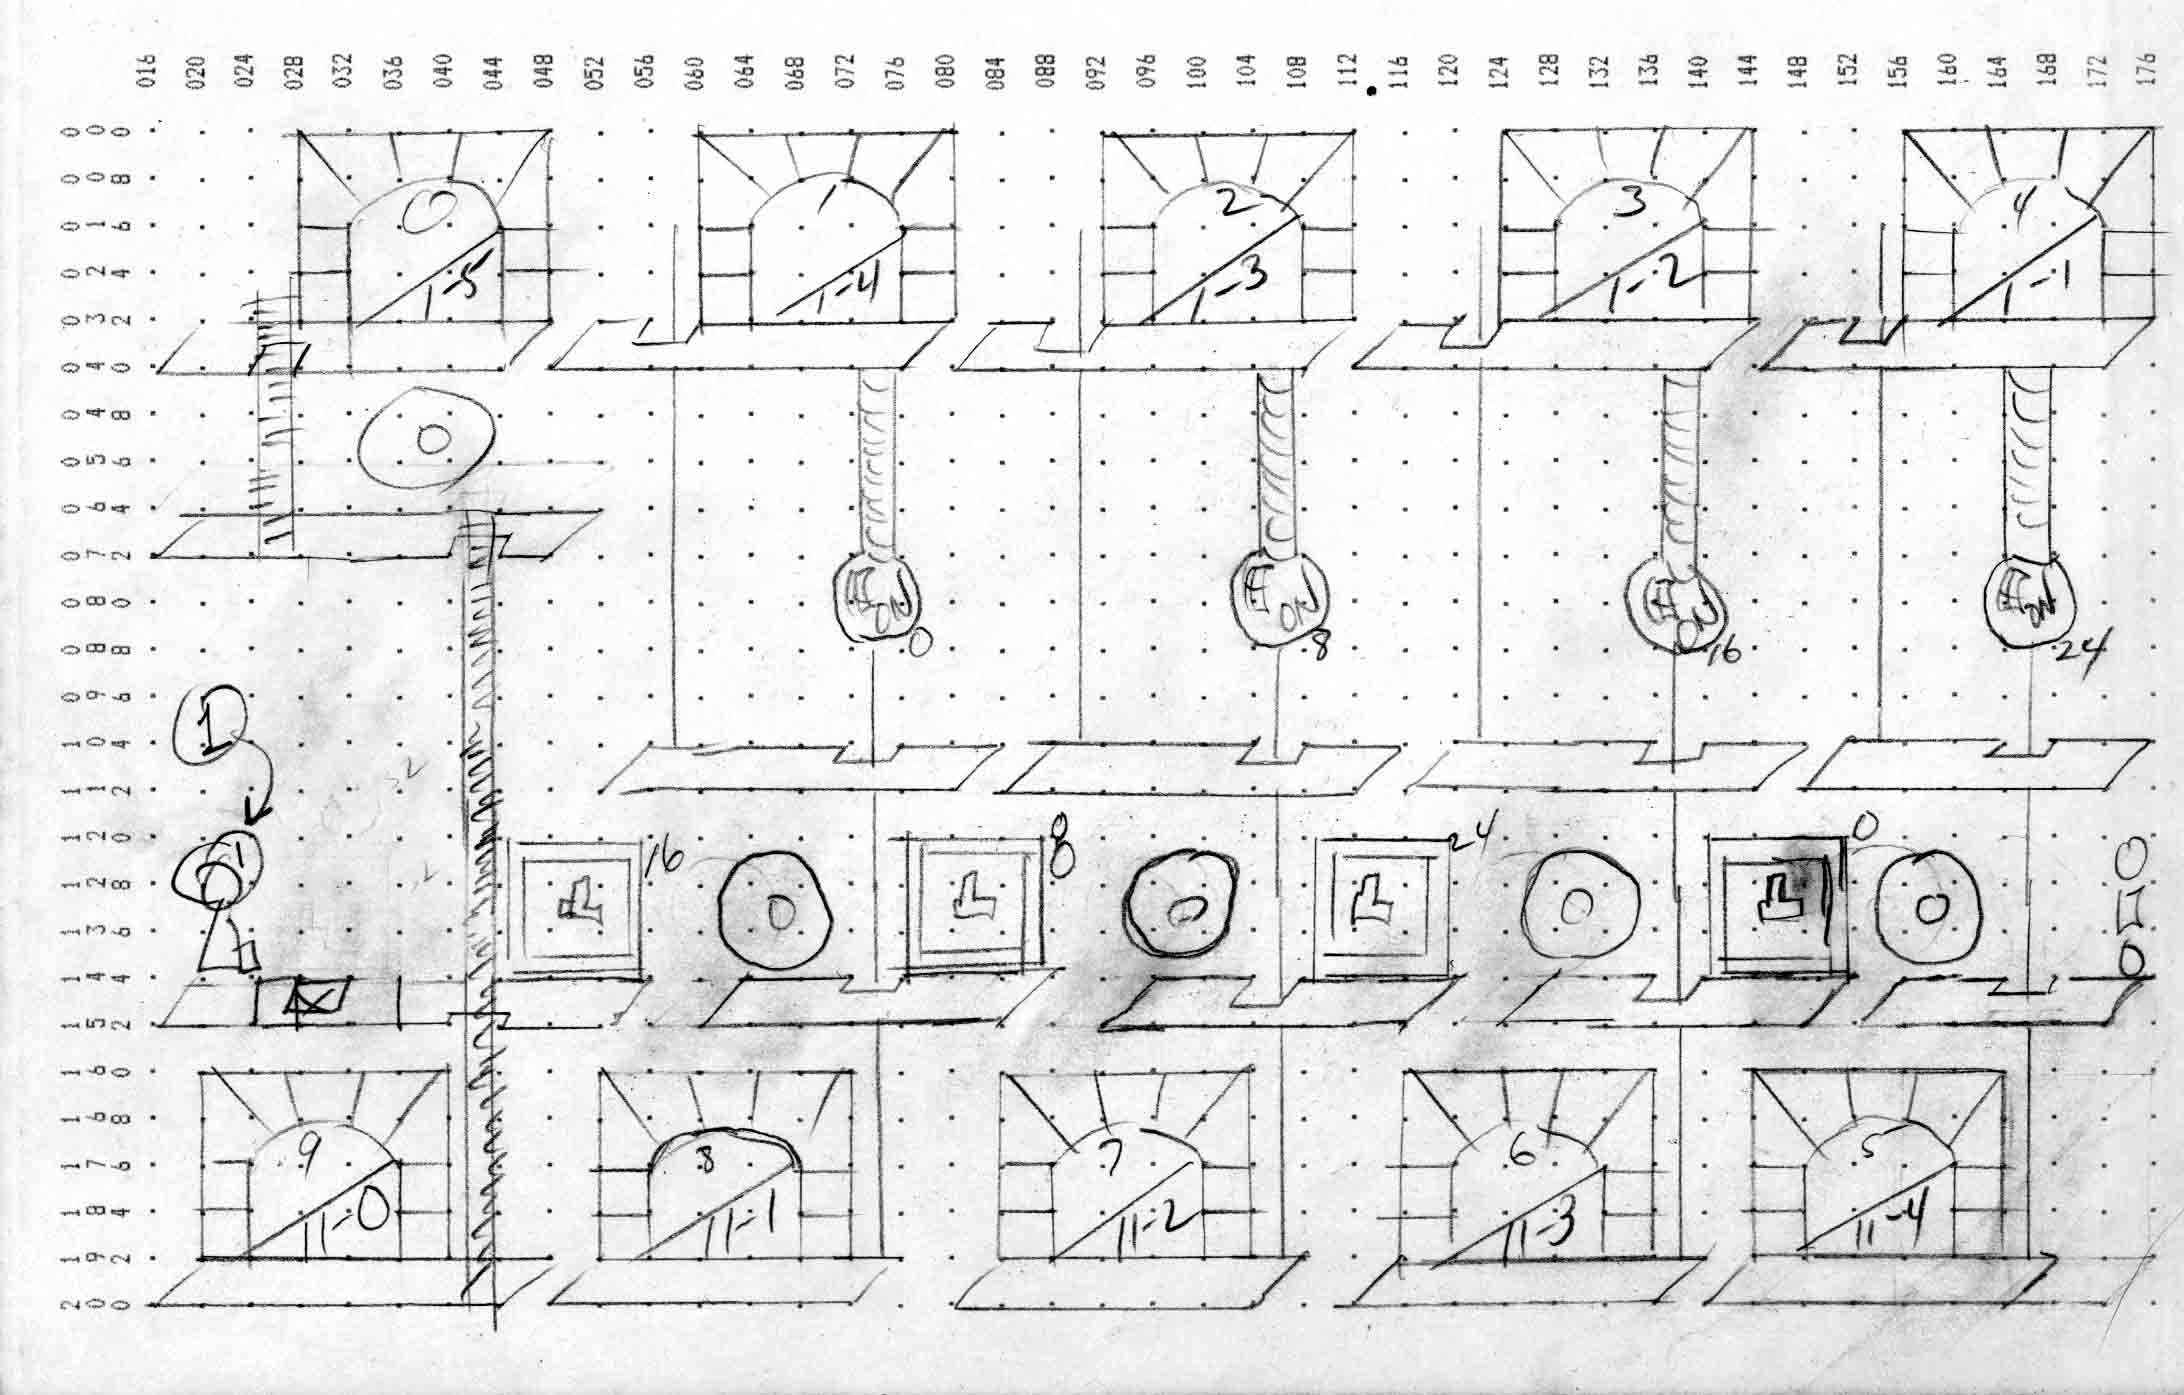 016 020 024 028 032 036 040 044 048 052 056 060 064 068 072 076 080 084 088 092 096 100 104 108 112 116 120 124 128 132 136 140 144 148 152 156 160 164 168 172 176
000
008
016
024
032
040
048
056
064
072
080
088
096
104
112
120
128
136
144
152
160
168
176
184
192
200
0 1 2 3 4
1-5 1-4 1-3 1-2 1-1
ON ON ON ON
0 8 16 24
1
16 8 24 0
9 8 7 6 5
11-0 11-1 11-2 11-3 11-4